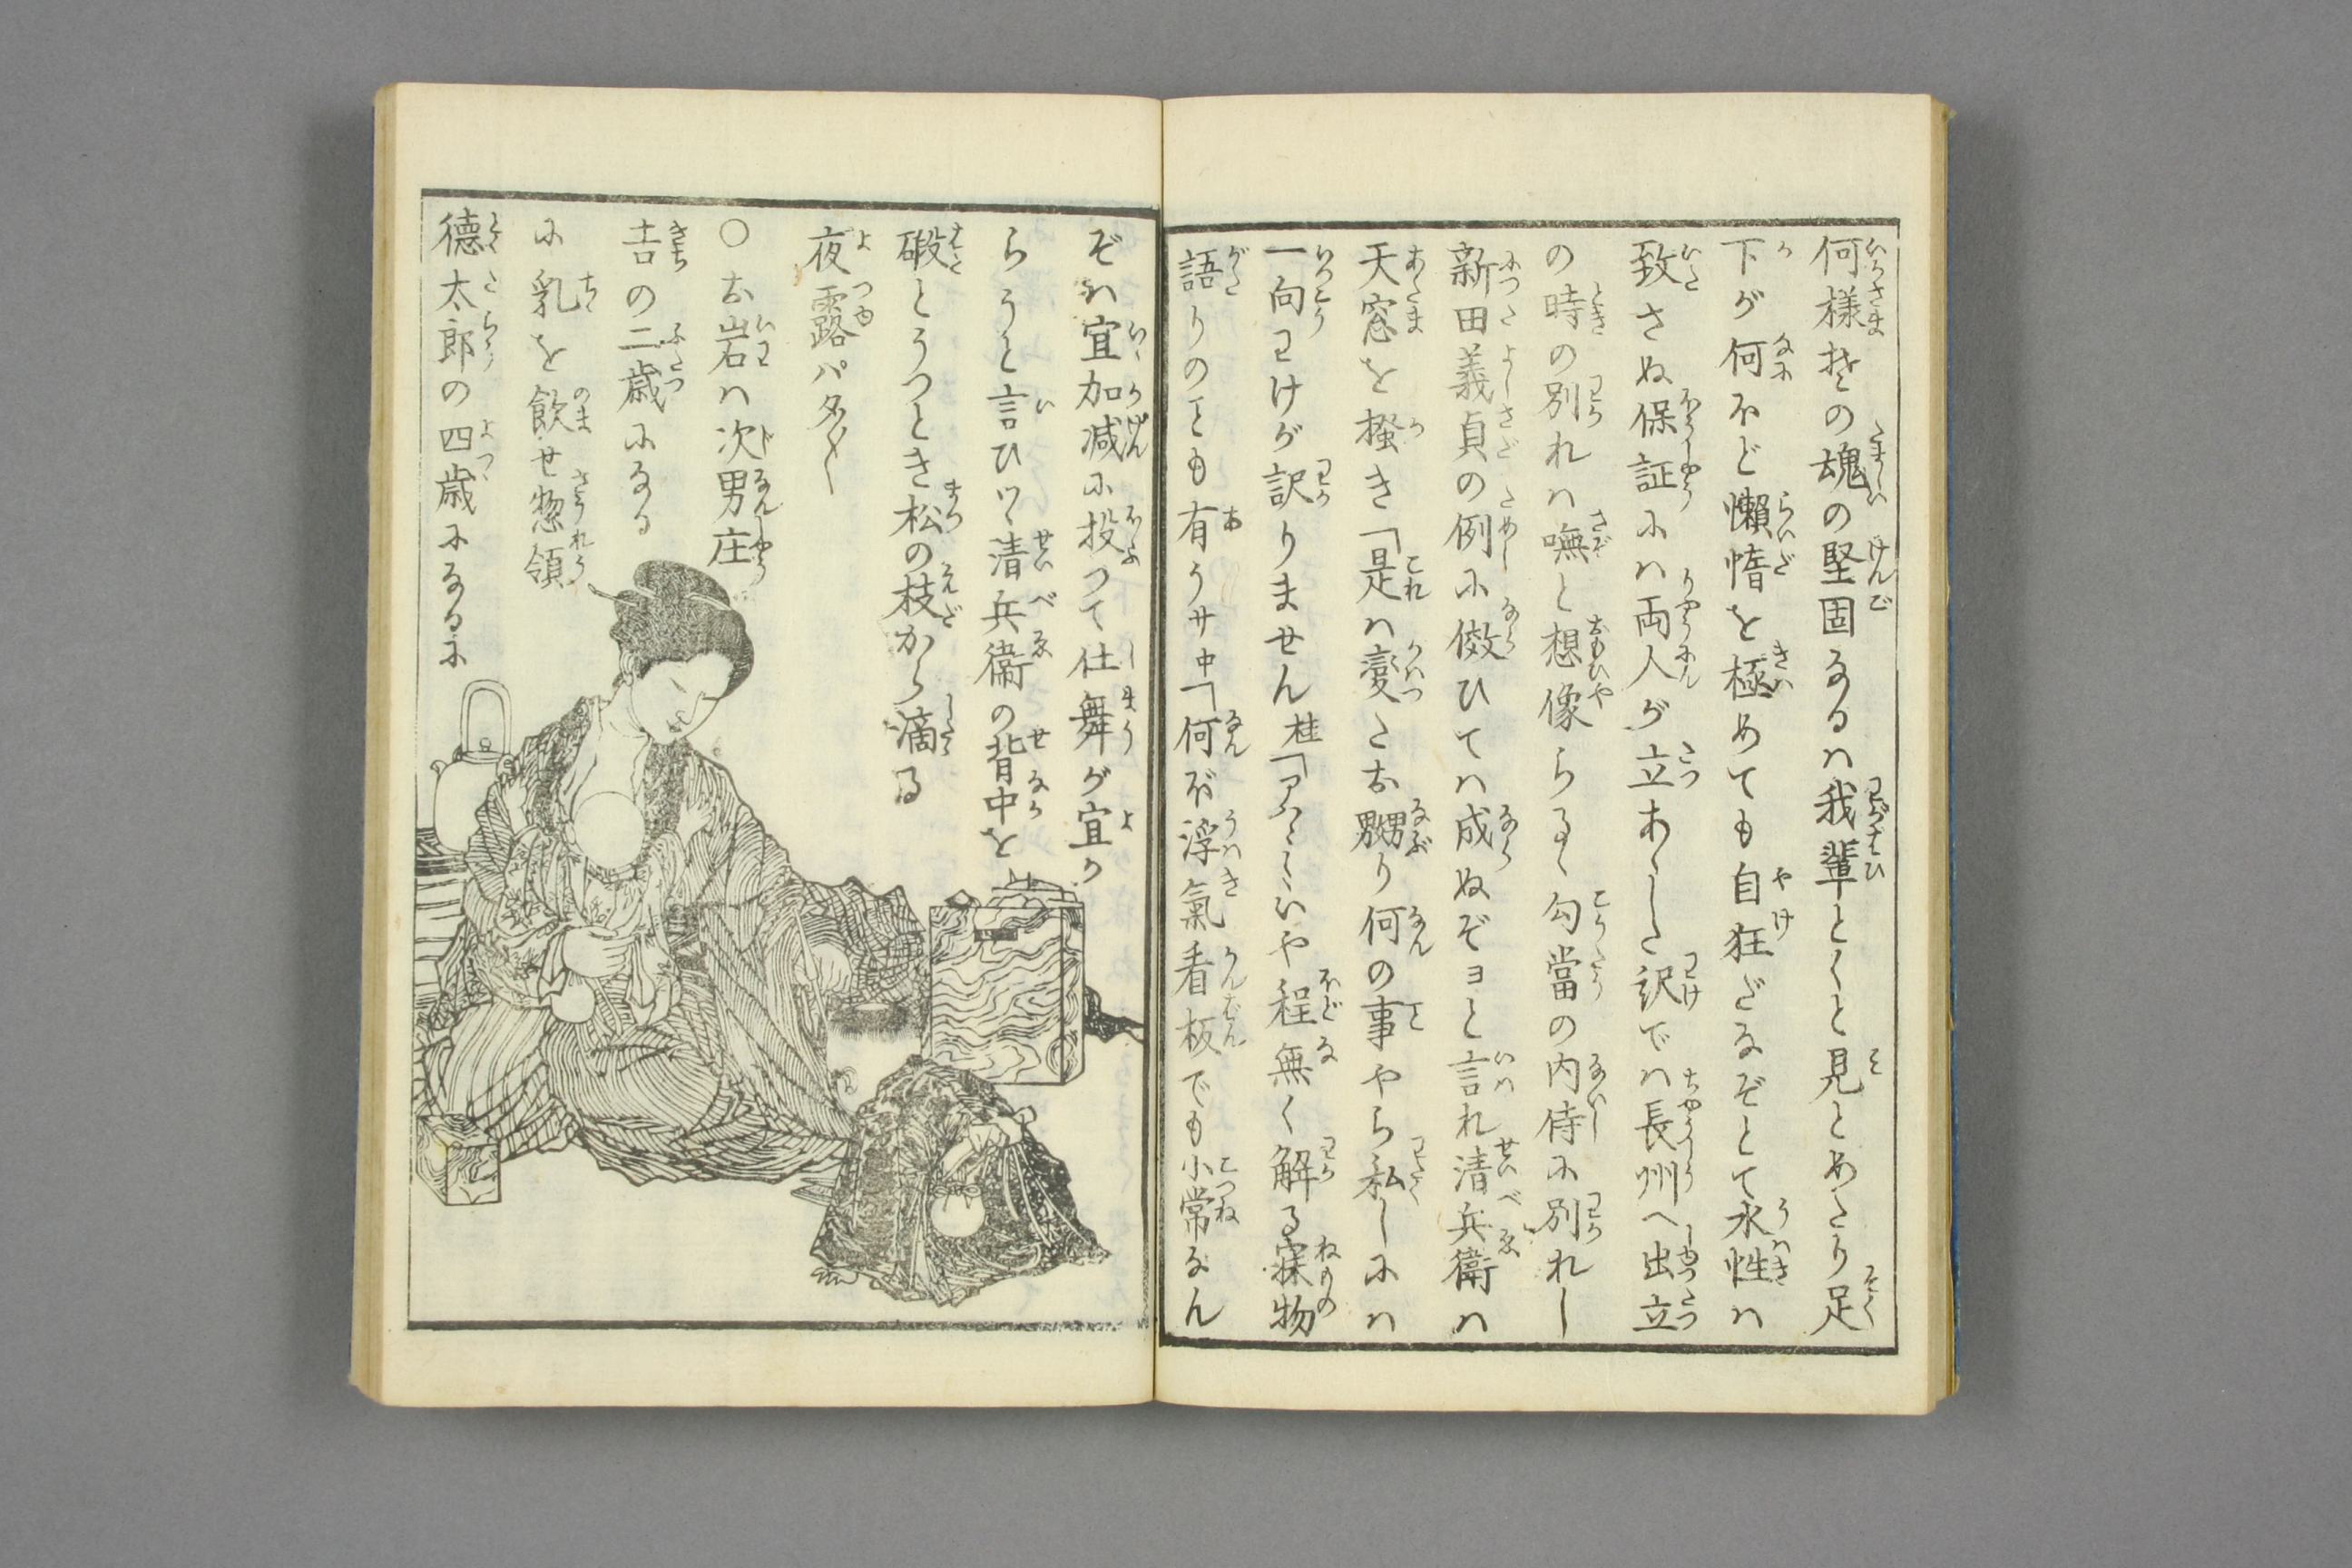 何様其の魂の堅固なるハ我輩とくと見とめたり足
下が何ほど懶惰を極めても自狂だなぞとて水性ハ
致さぬ保証にハ両人が立あゝした訳でハ長州へ出立
の時の別れハ嘸と想像らるゝ勾當の内侍に別れし
新田義貞の例に傚ひてハ成ぬぞヨと言れ清兵衛ハ
天窓を掻き「是ハ変たお嬲り何の事やら私しにハ
一向わけが訳りません桂「アハヽヽいや程無く解る寐物
語りのことも有うサ中「何ぼ浮氣看板でも小常なん
ぞハ宜加減に投つて仕舞が宜か
らうと言ひツヽ清兵衛の背中を
礑とうつとき松の枝から滴る
夜露パタ〳〵
○お岩ハ次男庄
吉の二歳になる
に乳を飲せ惣領
德太郎の四歳になるに